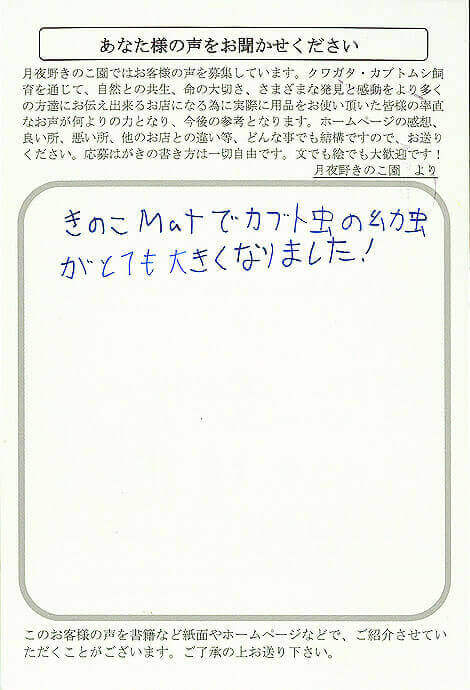 あなた様の声をお聞かせください
月夜野きのこ園ではお客様の声を募集しています。クワガタ・カブトムシ飼
育を通じて、自然との共生、命の大切さ、さまざまな発見と感動をより多く
の方達にお伝え出来るお店になる為に実際に用品をお使い頂いた皆様の率直
なお声が何よりの力となり、今後の参考となります。ホームページの感想、
良い所、悪い所、他のお店との違い等、どんな事でも結構ですので、お送り
ください。応募はがきの書き方は一切自由です。文でも絵でも大歓迎です！
月夜野きのこ園　より
きのこMatでカブト虫の幼虫
がとても大きくなりました!
このお客様の声を書籍など紙面やホームページなどで、ご紹介させてい
ただくことがございます。ご了承の上お送り下さい。